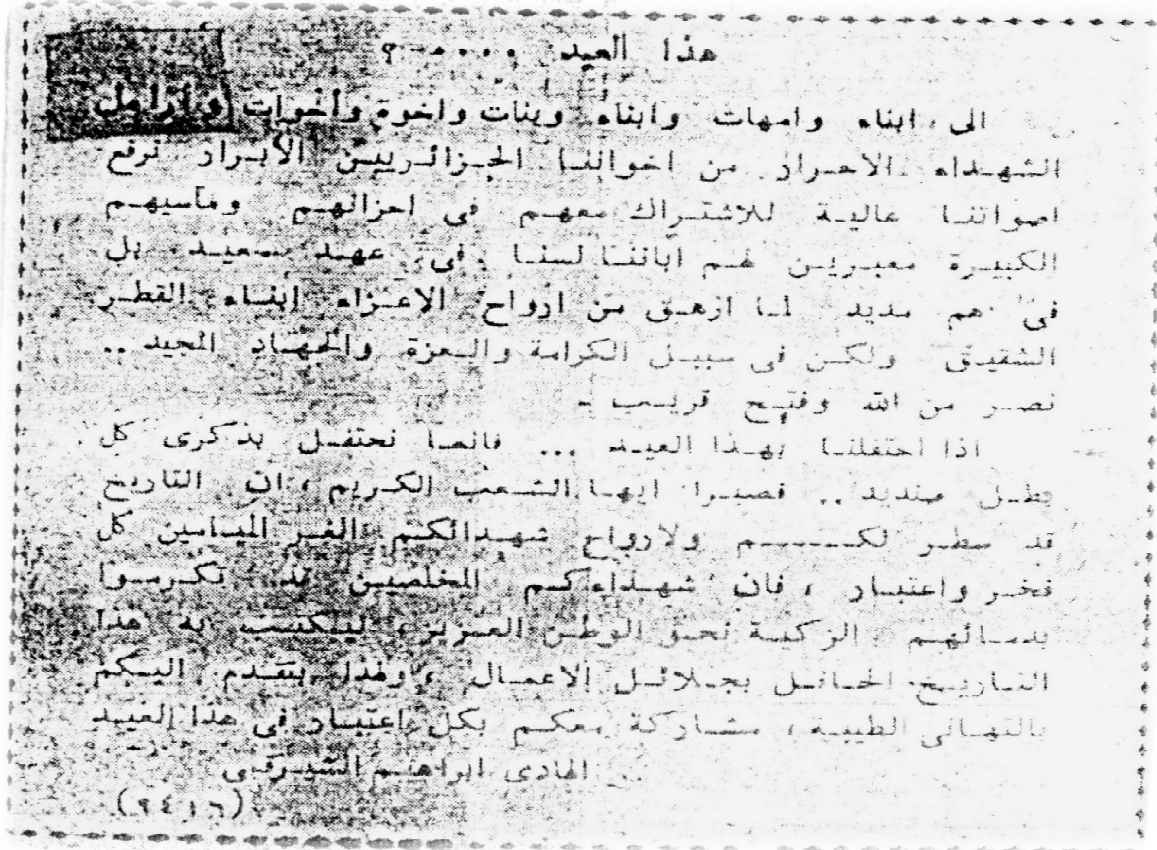 هذا العيد ....؟
الى ابناء وامهات وابناء وبنات واخوة وأخوات وأرامل
الشهداء الاحرار من اخواننا الجزائريين الأبرار نرفع
اصواتنا عالية للاشتراك معهم فى احزانهم ومآسيهم
الكبيرة معبرين لهم اباننا لسنا فى عهد سعيد بل
فى هم مديد لما ازهق من ارواح الاعزاء ابناء القطر
الشقيق ولكن فى سبيل الكرامة والعزة والجهاد المجيد ..
نصر من الله وفتح قريب -
اذا احتفلنا بهذا العيد ... فانما نحتفل بذكرى كل
بطل صنديد .. فصبرا ايها الشعب الكريم ، ان التاريخ
قد سطر لكم ولارواح شهدائكم الغر الميامين كل
فخر واعتبار ، فان شهداءكم المخلصين قد تكرسوا
بدمائهم الزكية نحو الوطن العزيز ، ليكتب به هذا
التاريخ الحافل بجلائل الاعمال ، ولهذا نتقدم اليكم
بالتهانى الطيبة ، مشاركة معكم بكل اعتبار فى هذا العيد
الهادى ابراهيم الشيرقى
(٢٤١٦)